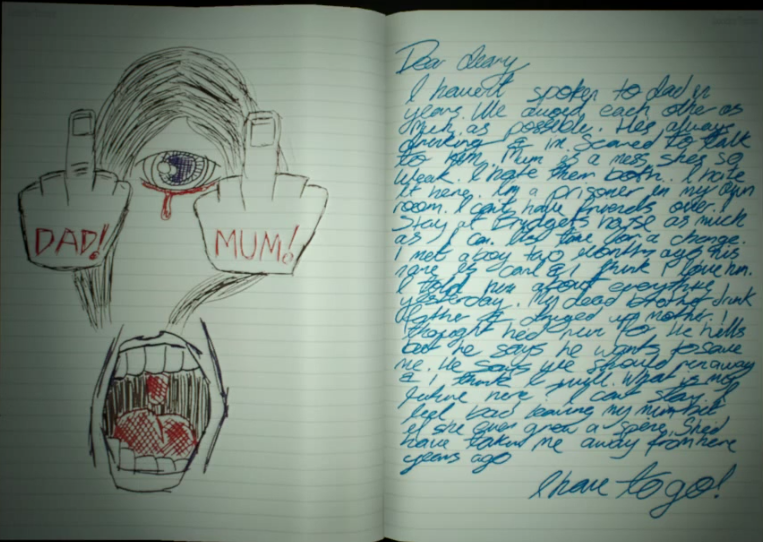 DAD!
MUM!
Dear diary
I havent spoken to dad in
years. We avoid each other as
much as possible. Hes always
drinking & Im scared to talk
to him. Mum is a mess shes so
weak. I hate them both. I hate
it here. Im a prisoner in my own
room. I cant have friends over I
stay at Bridgets house as much
as I can. for a change.
I met a boy two months ago his
name is Carl & I think I love him.
I told him about everything
yesterday. My dead brother drunk
father & druged up mother. I
thought hed run for the hills
but he says he wants to save
me. He says we should run away
& I think I will. What is my
future here? I cant stay. I
feel bad leaving my mum but
if she ever grew a spine, shed
have taken me away from here
years ago
I have to go!